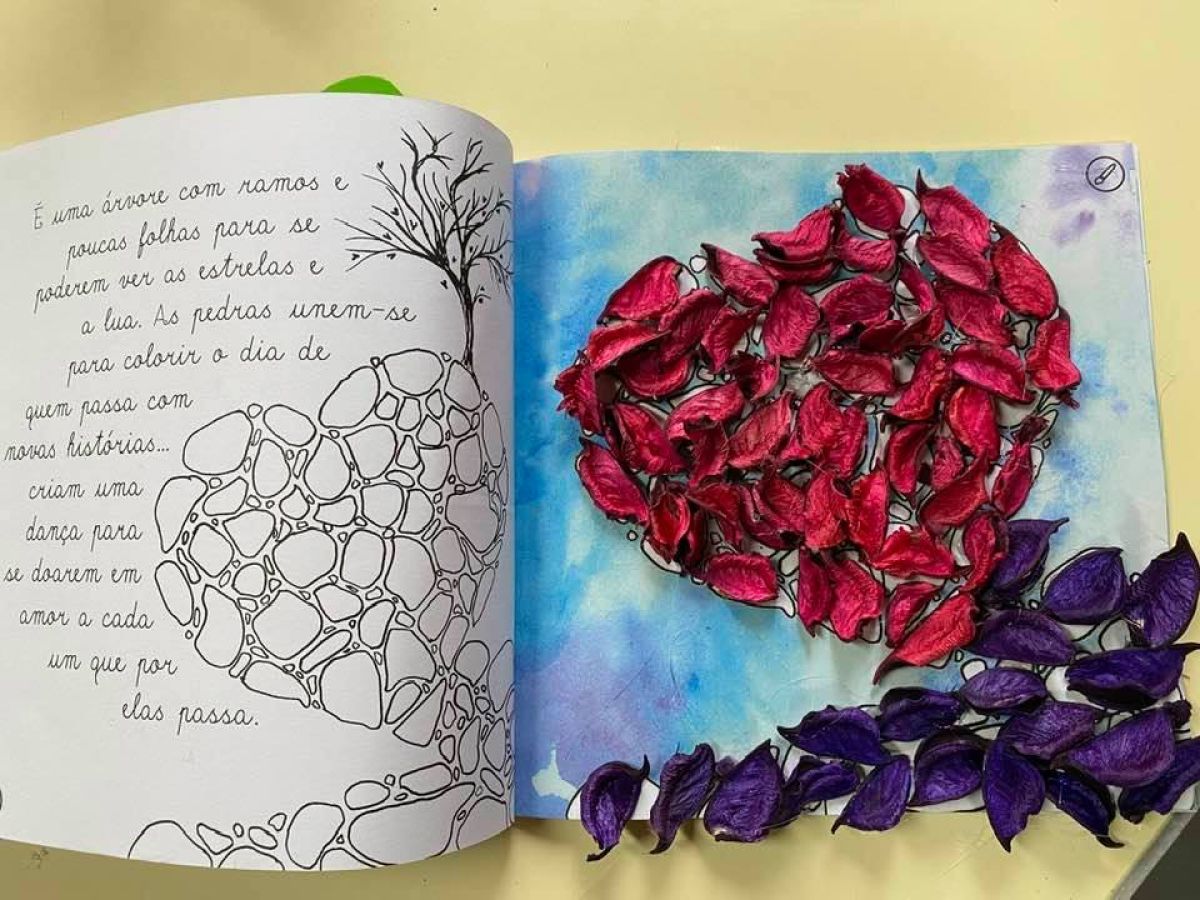 É uma árvore com ramos e
poucas folhas para se
poderem ver as estrelas e
a lua. As pedras unem-se
para colorir o dia de
quem passa com
novas histórias...
criam uma
dança para
se doarem em
amor a cada
um que por
elas passa.